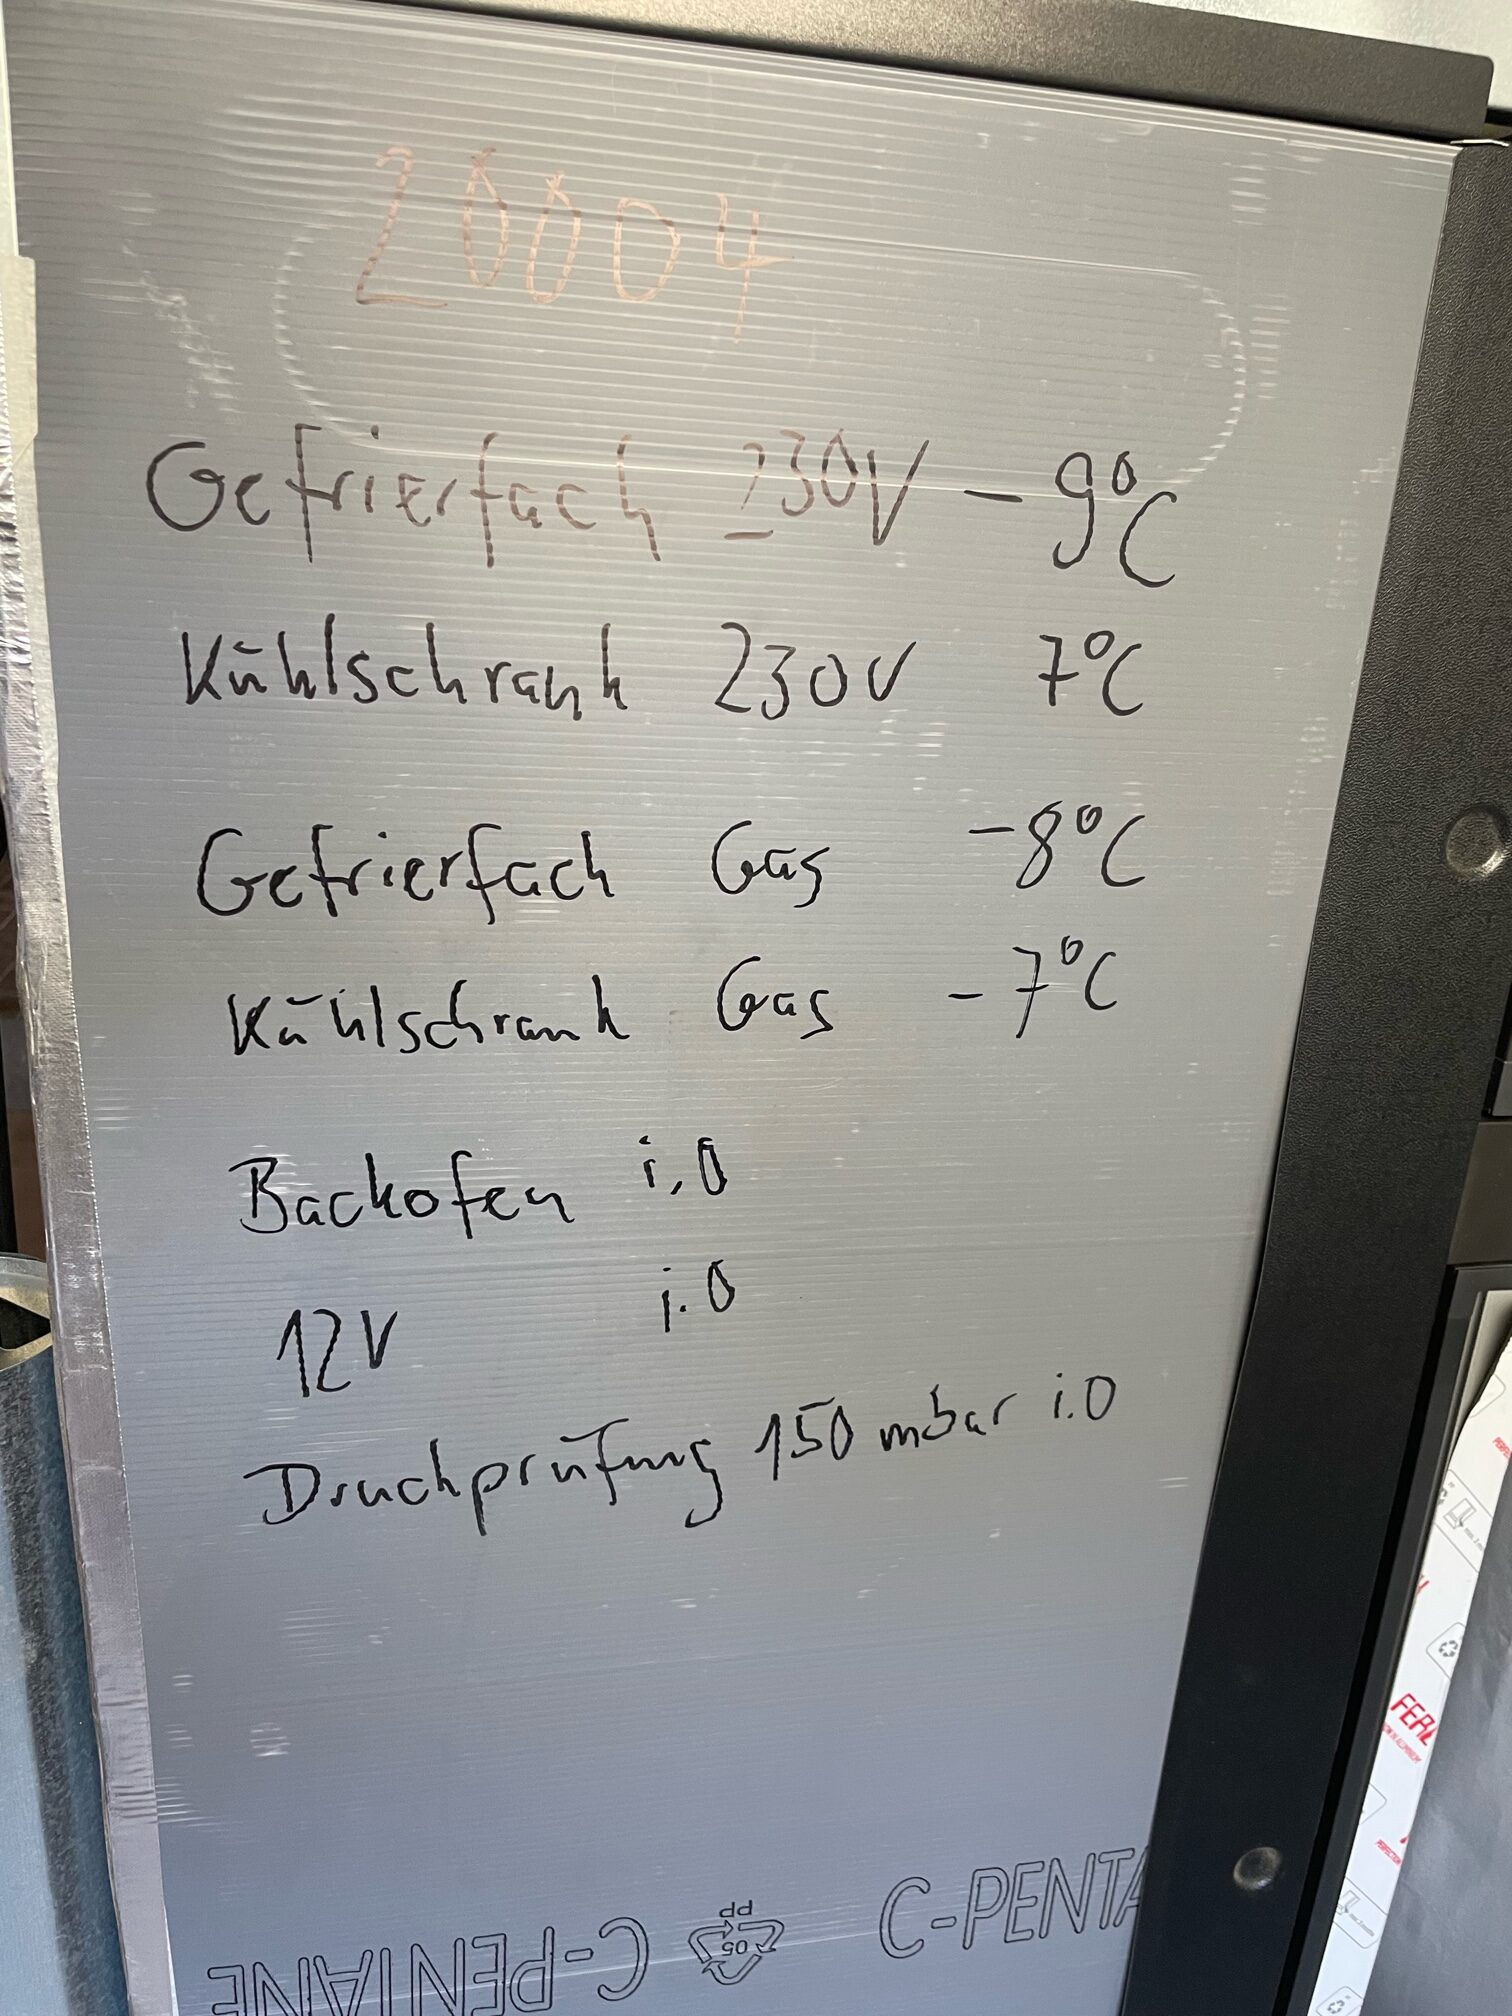 20004
Gefrierfach 230V - 9°C
Kühlschrank 230V 7°C
Gefrierfach Gas -8°C
Kühlschrank Gas - 7°C
Backofen i.O
12V i.O
Druckprüfung 150 mbar i.O
C-PENTANE
05
PP
C-PENTA
FERL